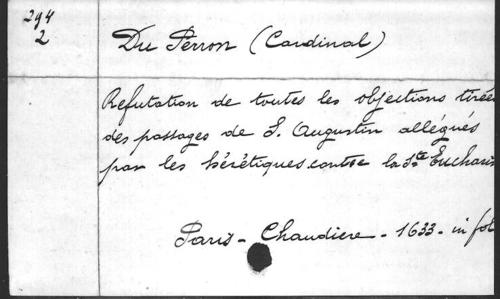 294
2
Du Perron (Cardinal)
Refutation de toutes les objections tirées
des passages de S. Augustin allégués
par les hérétiques contre la Ste Eucharis
Paris - Chaudiere - 1633 - in fol